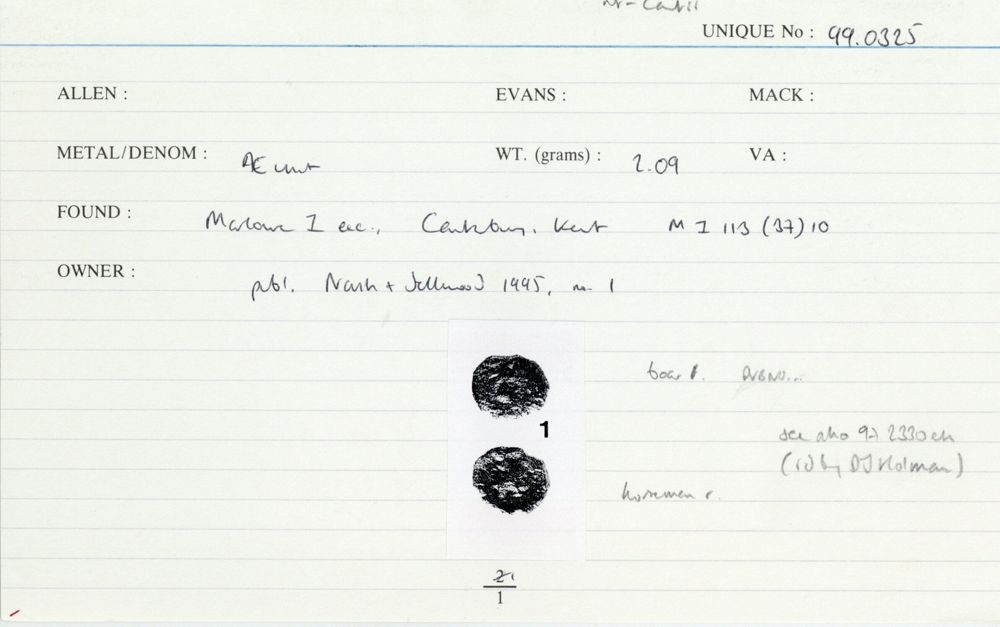 UNIQUE No : 99.0325
ALLEN : EVANS : MACK :
METAL/DENOM : AE unit WT. (grams) : 2.09 VA :
FOUND : Marlowe I exc., Canterbury, Kent M I 113 (37) 10
OWNER : publ. Nash + Sellwood 1995, no. 1
boar l.
1
see also 97.2330 etc
(id by DJ Holman)
horseman r.
21
1